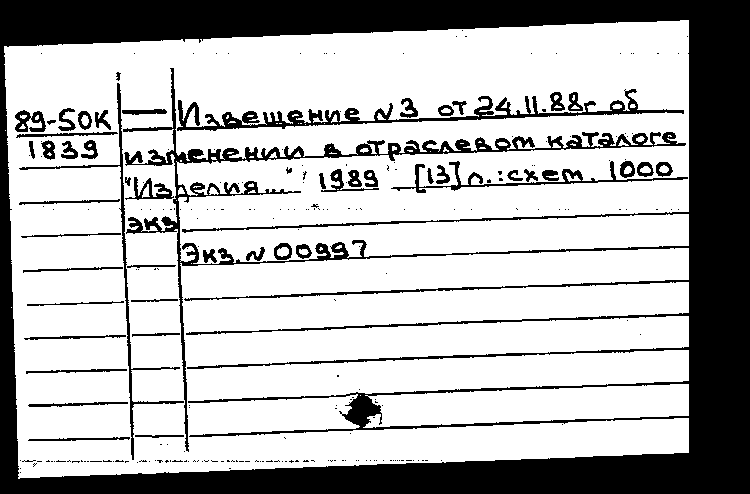 89-50К — Извещение №3 от 24.11.88г об
1839 изменении в отраслевом каталоге
"Изделия..." 1989 [13]л.:схем. 1000
экз.
Экз. №00997